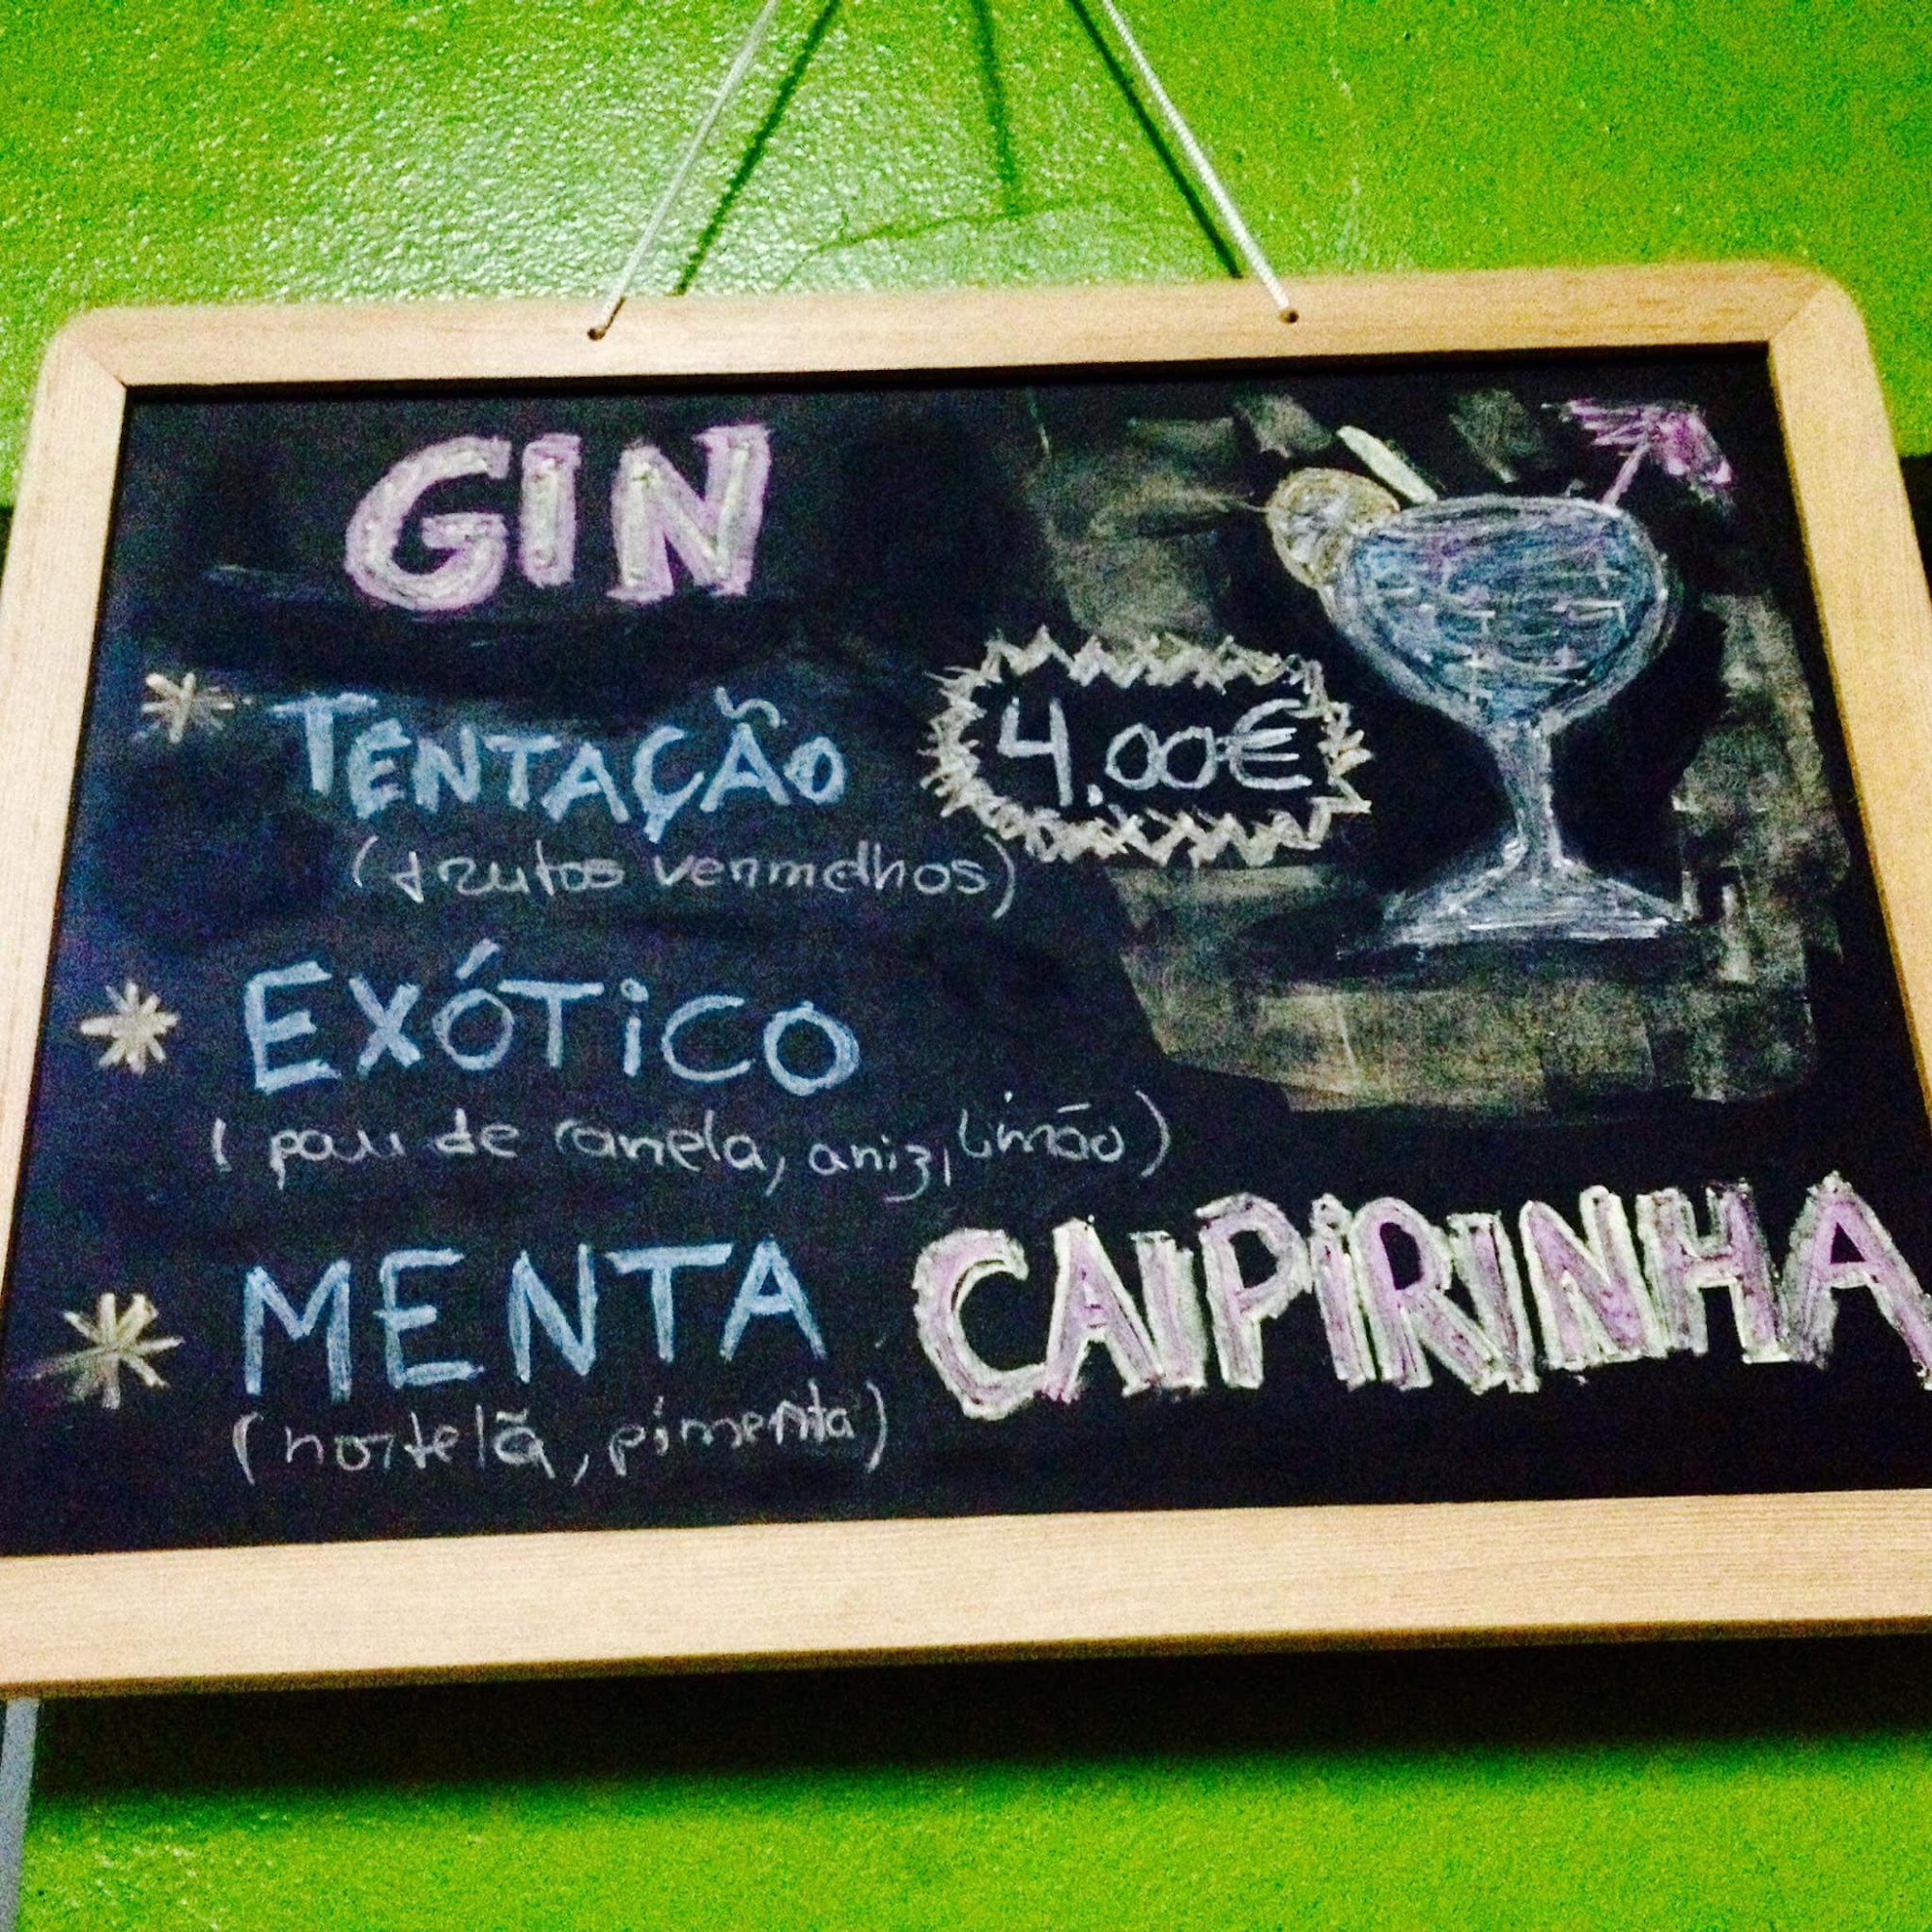 GIN
* TENTAÇÃO
4.00€
(frutos vermelhos)
* EXÓTiCO
(pau de canela, aniz, Limão)
* MENTA
(hortelã, pimenta)
CAIPiRINHA